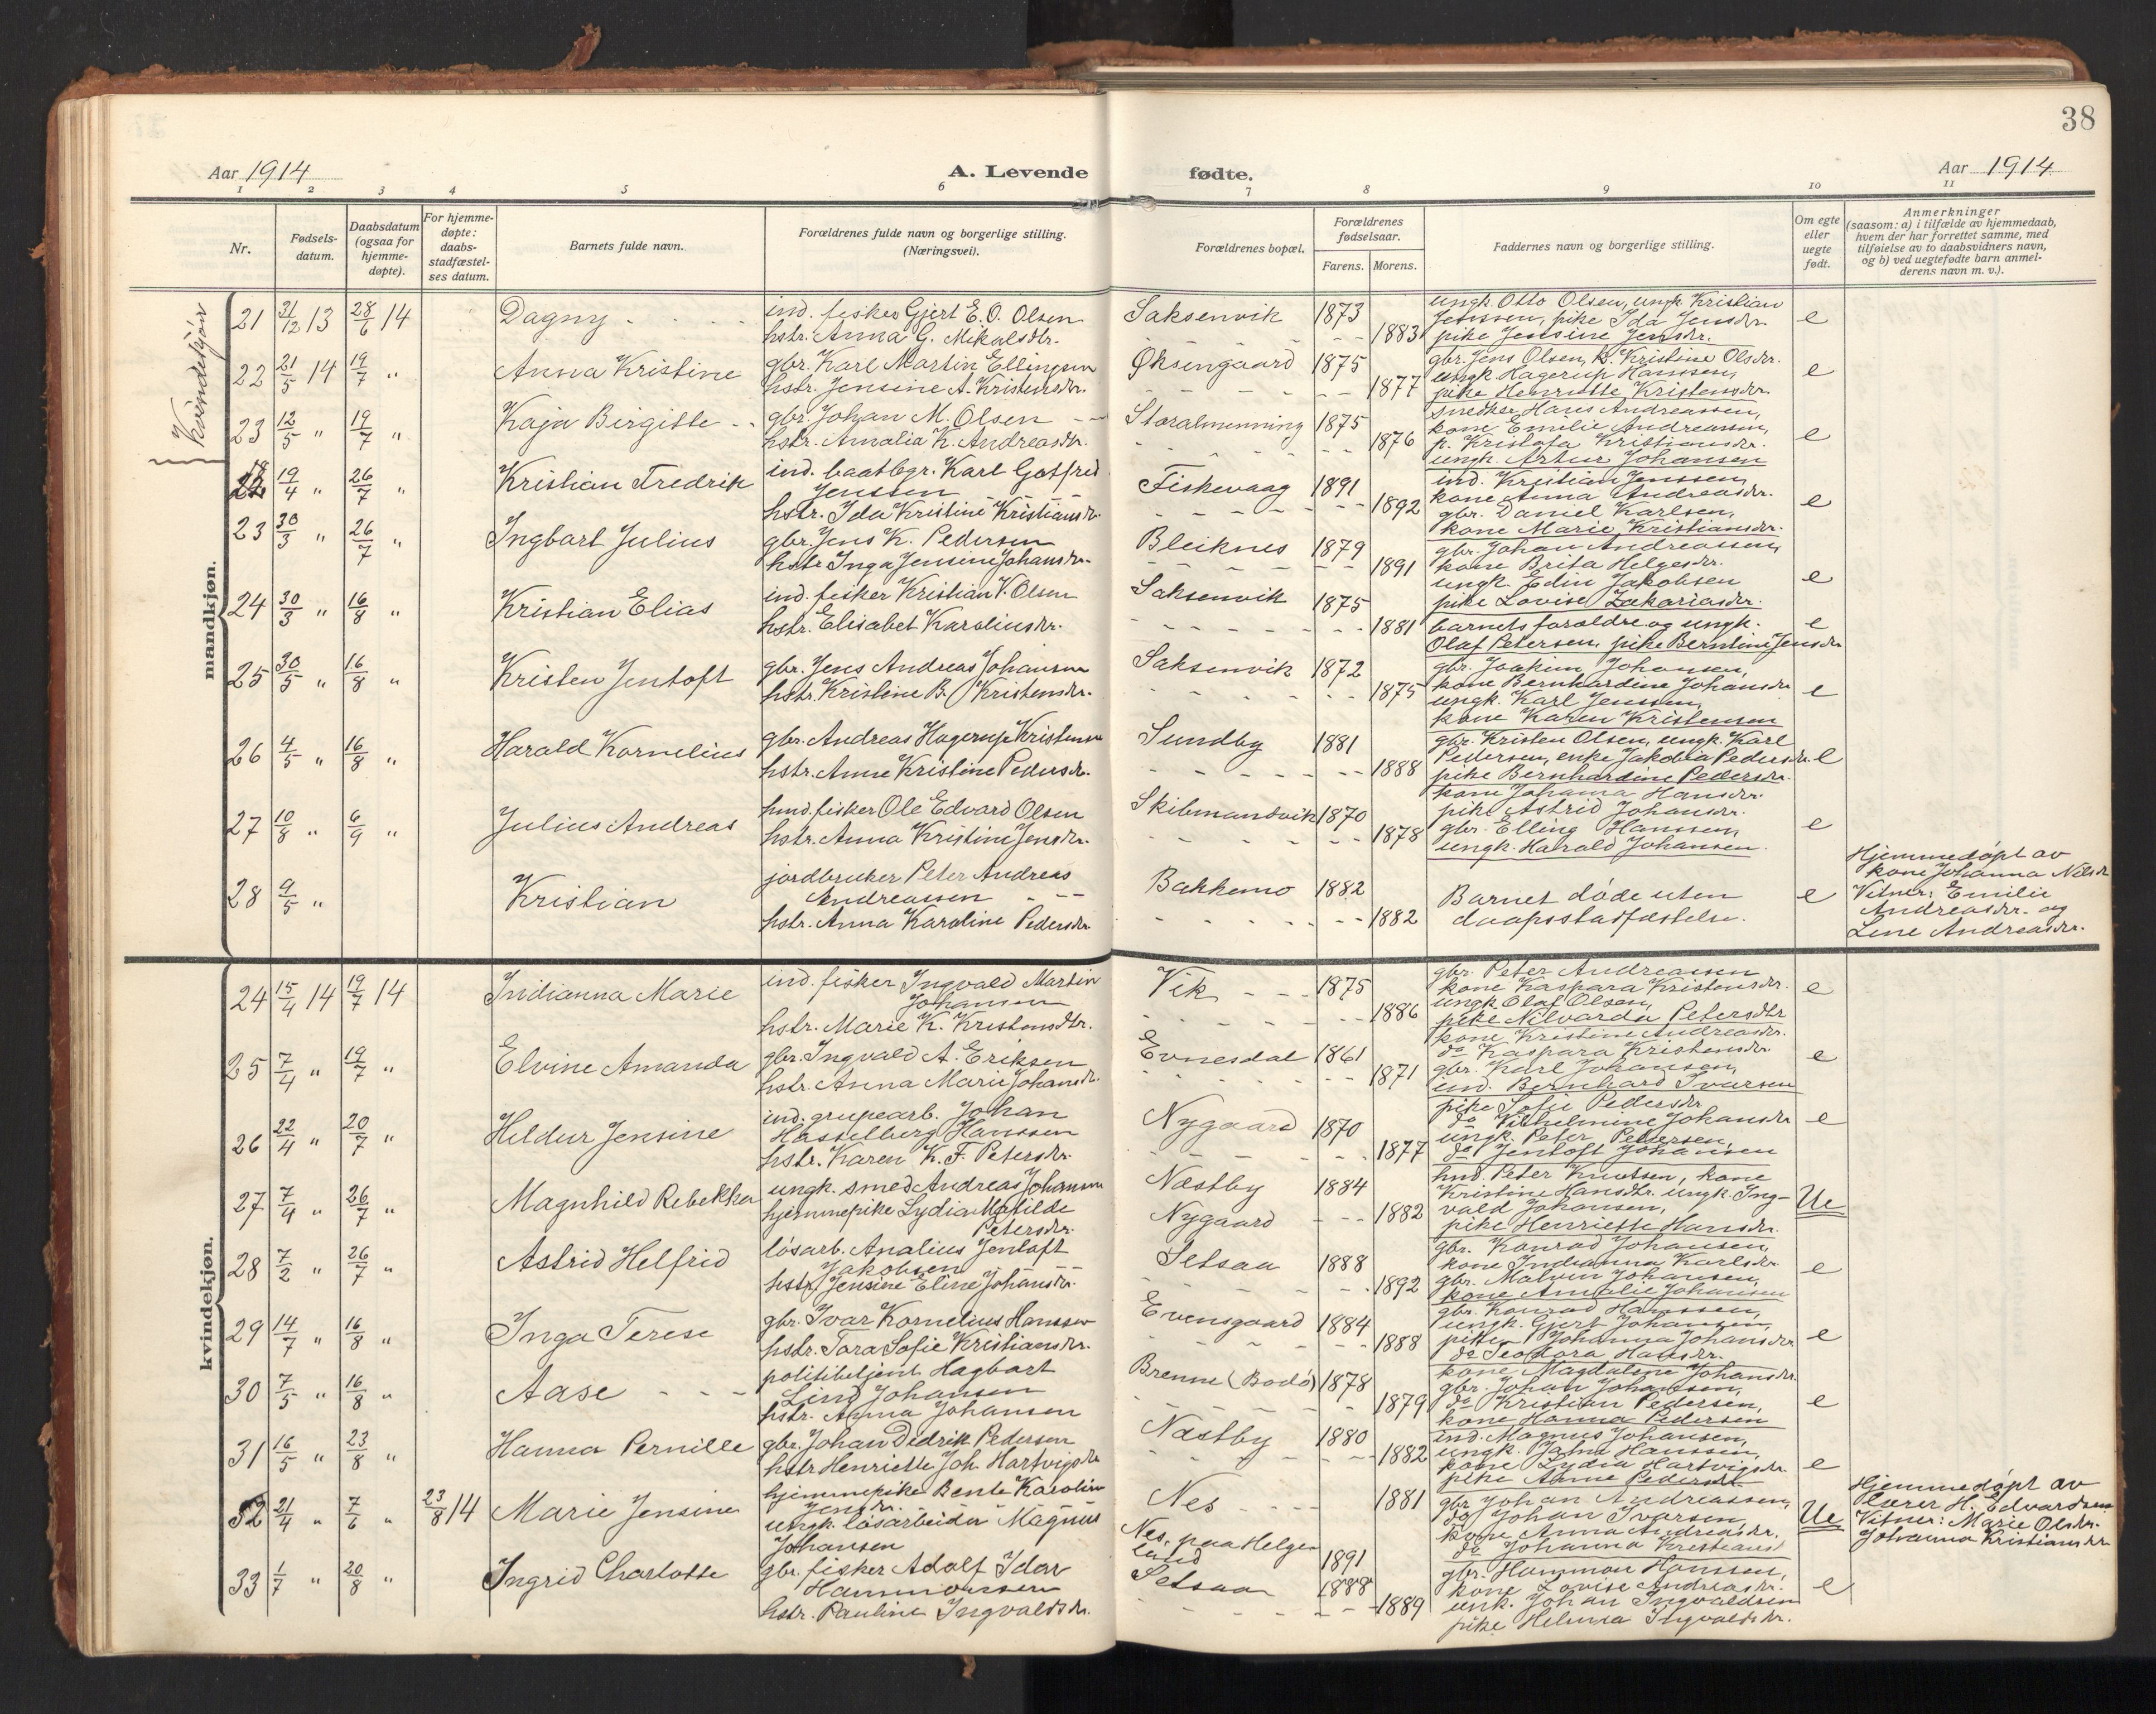 38
Aar 1914
A. Levende
fødte.
Aar 1914
1 2 3 4 5 6 7 8 9 10 11
Nr.
Fødsels-
datum.
Daabsdatum
(ogsaa for
hjemme-
døpte).
For hjemme-
døpte:
daabs-
stadfæstel-
ses datum.
Barnets fulde navn.
Forældrenes fulde navn og borgerlige stilling.
(Næringsvei).
Forældrenes bopæl.
Forældrenes
fødselsaar.
Farens. Morens.
Faddernes navn og borgerlige stilling.
Om egte
eller
uegte
født.
Anmerkninger
(saasom: a) i tilfælde av hjemmedaab,
hvem der har forrettet samme, med
tilføielse av to daabsvidners navn,
og b) ved uegtefødte barn anmel-
derens navn m. v.).
Kvindekjøn
mandkjøn.
kvindekjøn.
21 31/12 13 28/6 14 Dagny
ind. fisker Gjert E. O. Olsen
hstr. Anna G. Mikalsdtr.
Saksenvik 1873
1883
ungk. Otto Olsen, ungk. Kristian
Jenssen, pike Ida Jensdr.
pike Jensine Jensdr.
e
22 21/5 14 19/7 " Anna Kristine
gbr. Karl Martin Ellingsen
hstr. Jensine A. Kristensdr.
Øksengaard 1875
1877
gbr. Jens Olsen, k. Kristine Olsdr.
ungk Hagerup Hanssen,
pike Henriette Kristensdr.
e
23 12/5 " 19/7 " Kaja Birgitte
gbr. Johan M. Olsen
hstr. Amalia K. Andreasdtr.
Storalmenning 1875
1876
snedker Hans Andreassen,
kone Emelie Andreassen,
p. Kristofa Kristiansdr.
ungk. Artur Johansen
e
18
19/4 " 26/7 " Kristian Fredrik
ind. baatbgr. Karl Gotfred
Jenssen
hstr. Ida Kristine Kristiansdr.
Fiskevaag 1891
1892
ind. Kristian Jenssen,
kone Anna Andreasdr.
gbr. Daniel Karlsen,
kone Marie Kristiansdr.
e
23 30/3 " 26/7 " Ingbart Julius
gbr. Jens K. Pedersen
hstr. Inga Jensine Johansdr.
Bleiknes 1879
1891
gbr. Johan Andreassen,
kone Brita Helgesdr.
ungk. Edin Jakobsen
pike Lovise Zakariasdr.
e
24 30/3 " 16/8 " Kristian Elias
ind. fisker Kristian V. Olsen
hstr. Elisabet Karoliusdr.
Saksenvik 1875
1881
barnets forældre og ungk.
Olaf Petersen, pike Berntine Jensdr
e
25 30/5 " 16/8 " Kristen Jentoft
gbr. Jens Andreas Johansen
hstr. Kristine B. Kristensdr.
Saksenvik 1872
1875
gbr. Joakim Johansen,
kone Bernhardine Johansdr
ungk. Karl Jenssen,
kone Karen Kristensen
e
26 4/5 " 16/8 " Harald Kornelius
gbr. Andreas Hagerup Kristensen
hstr. Anne Kristine Pedersdr.
Sundby 1881
1888
gbr. Kristen Olsen, ungk. Karl
Pedersen, enke Jakobia Pedersdr.
pike Bernhardine Pedersdr.
e
27 10/8 " 6/9 " Julius Andreas
hmd. fisker Ole Edvard Olsen
hstr. Anna Kristine Jensdr.
Skibmandvik 1870
1878
kone Johanna Hansdr.
pike Astrid Johansdr.
gbr. Elling Hanssen,
ungk. Harald Johansen.
e
28 9/5 " Kristian
jordbruker Peter Andreas
Andreassen
hstr. Anna Karoline Pedersdr
Bakkemo 1882
1882
Barnet døde uten
daapsstadfæstelse.
e
Hjemmedøpt av
kone Johanna Nilsdr
Vitner: Emilie
Andreasdr. og
Lene Andreasdr.
24 15/4 14 19/7 14 Indianna Marie
ind. fisker Ingvald Martin
Johansen
hstr. Marie K. Kristensdtr.
Vik 1875
1886
gbr. Peter Andreassen
kone Kaspara Kristensdr.
ungk Olaf Olsen,
pike Nilvarda Petersdtr
e
25 7/4 " 19/7 " Elvine Amanda
gbr. Ingvald A. Eriksen
hstr. Anna Marie Johansdr.
Evnesdal 1861
1871
kone Kristine Andreasdr.
do Kaspara Kristensdr
gbr. Karl Johansen,
ind. Bernhard Ivarsen
e
26 22/4 " 20/7 " Heldur Jensine
ind. grupearb. Johan
Hasselberg Hanssen
hstr. Karen K. F. Petersdr.
Nygaard 1870
1877
pike Sofie Pedersdr
do Vilhelmine Johansdr
ungk. Peter Pedersen,
do Jentoft Johansen
e
27 7/4 " 26/7 " Magnhild Rebekka
ungk. smed Andreas Johansen
hjemmepike Lydia Matilde
Petersdr.
Næstby 1884
Nygaard 1882
hmd. Peter Knutsen, kone
Kristine Hansdtr. ungk. Ing-
vald Johansen,
pike Henriette Hansdr.
Ue
28 7/2 " 26/7 " Astrid Helfrid
løsarb. Analius Jentoft
Jakobsen
hstr. Jensine Eline Johansdr.
Setsaa 1888
1892
gbr. Konrad Johansen,
kone Indianna Karlsdr.
gbr. Malvin Johansen,
kone Amalie Johansen
e
29 14/7 " 16/8 " Inga Terese
gbr. Ivar Kornelius Hanssen
hstr. Tora Sofie Kristiansdr.
Evensgaard 1884
1888
gbr. Konrad Hanssen,
ungk. Gjert Johansen,
pike Johanna Johansdr
do Teodora Hansdr.
e
30 7/5 " 16/8 " Aase
politibetjent Hagbart
Lind Johansen
hstr. Anna Johansen
Brenne (Bodø) 1878
1879
kone Magdalene Johansdr.
gbr. Johan Johansen,
do Kristian Pedersen,
kone Hanna Pedersen
e
31 16/5 " 23/8 " Hanna Pernille
gbr. Johan Didrik Pedersen
hstr Henriette Joh. Hartvigsdr
Næstby 1880
1882
ind. Magnus Johansen,
ungk. John Hanssen,
kone Lydia Hartvigsdr.
pike Anne Pedersdr.
e
32 21/4 " 7/6 " 23/8 14 Marie Jensine
hjemmepike Bente Karoline
Jensdr.
ungk. løsarbeider Magnus
Johansen
Nes 1881
Nes, paa Helge-
land 1891
gbr Johan Andreassen,
do Johan Ivarsen,
kone Anna Andreasdr.
do Johanna Kristians
Ue
Hjemmedøpt av
lærer H. Edvardsen
Vitner: Marie Olsdr.
Johanna Kristiansdr
33 1/7 " 20/8 " Ingrid Charlotte
gbr. fisker Adolf Idar
Hammonssen
hstr. Pauline Ingvaldsdr.
Setsaa 1888
1889
gbr. Hammon Hanssen,
kone Lovise Andreasdr.
unk. Johan Ingvaldsen
pike Helmina Ingvaldsdr.
e